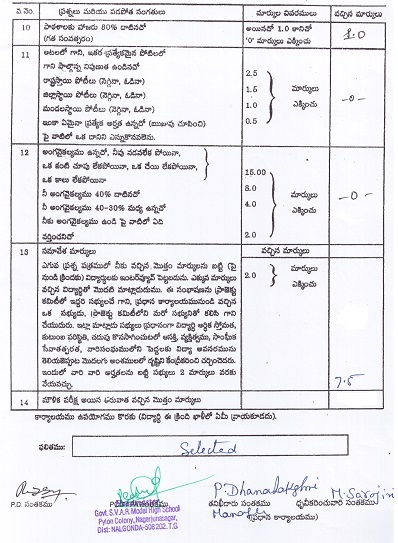 వ.నెం.	ప్రశ్నలు మరియు పడపోత సంగతులు	మార్కుల వివరములు	వచ్చిన మార్కులు
10	పాఠశాలకు హాజరు 80% దాటినదో	అయినదో 1.0 కానిదో	1.0
(గత సంవత్సరం)	'0' మార్కులు ఎక్కించు
11	ఆటలలో గాని, ఇతర ప్రత్యేకమైన పోటీలలో
గాని పాల్గొన్న నిపుణుత ఉండినదో
రాష్ట్రస్థాయి పోటీలు (నెగ్గినా, ఓడినా)	2.5
జిల్లాస్థాయి పోటీలు (నెగ్గినా, ఓడినా)	1.5	మార్కులు	-0-
మండలస్థాయి పోటీలు (నెగ్గినా, ఓడినా)	1.0	ఎక్కించు
ఇంకా ఏమైనా ప్రత్యేక అర్హత ఉన్నదో (ఋజువు చూపించి)	0.5
పై వాటిలో ఒక దానిని ఎన్నుకొనవలెను.
12	అంగవైకల్యము ఉన్నదో, నీవు నడవలేక పోయినా,
ఒక కంటి చూపు లేకపోయినా, ఒక చేయి లేకపోయినా,
ఒక కాలు లేకపోయినా	15.00
నీ అంగవైకల్యము 40% దాటినదో	8.0	మార్కులు	-0-
నీ అంగవైకల్యము 40-30% మధ్య ఉన్నదో	4.0	ఎక్కించు
నీకు అంగవైకల్యము ఉండి పై వాటిలో ఏది
వర్తించనిదో	2.0
13	సమావేశ మార్కులు	వచ్చిన మార్కులు
ఎగువ ప్రశ్న పత్రములో నీకు వచ్చిన మొత్తం మార్కులను బట్టి (పై
నుండి క్రిందకు) విద్యార్థులకు ఇంటర్వ్యూకై పెట్టబడును. ఎక్కువ మార్కులు	2.0	మార్కులు
వచ్చిన విద్యార్థితో మొదటి మాట్లాడుదుము. ఈ సంభాషణను ప్రాజెక్టు	ఎక్కించు
కమిటీలో ఇద్దరి సభ్యులతే గాని, ప్రధాన కార్యాలయమునుండి వచ్చిన
ఒక సభ్యుడు, ప్రాజెక్ట్ కమిటీలోని మరో సభ్యునితో కలిసి గాని
చేయుదురు. ఇట్లా మాట్లాడు సభ్యులు ప్రధానంగా విద్యార్థి ఆర్థిక స్తోమత,
కుటుంబ పరిస్థితి, చదువు కొనసాగించుటలో ఆసక్తి, వ్యక్తిత్వము, సాంఘీక
సేవాతత్పరత, వారిసంఘములోని పెద్దలకు విద్యా అవసరమును
తెలియజెప్పుట మొదలగు అంశములలో దృష్టిని కేంద్రీకరించి చర్చించెదరు.
ఇందులో వారి వారి అర్హతలను బట్టి సభ్యులు 2 మార్కులు వరకు
వేయవచ్చు.	7.5
14	మౌఖిక పరీక్ష అయిన తరువాత వచ్చిన మొత్తం మార్కులు
కార్యాలయము ఉపయోగము కొరకు (విద్యార్థి ఈ క్రింది ఖాళీలో ఏమీ వ్రాయకూడదు).
ఫలితము:	Selected
P. Dhanalakshmi	M. Sarojini
P.D. సంతకము	సంతకము	తనిఖీదారు సంతకము	ధృవీకరించువారి సంతకము
(ప్రధాన కార్యాలయం)
Govt. S.V.A.R. Model High School
Pylon Colony, Nagarjunasagar,
Dist: NALGONDA-508 202. T.G